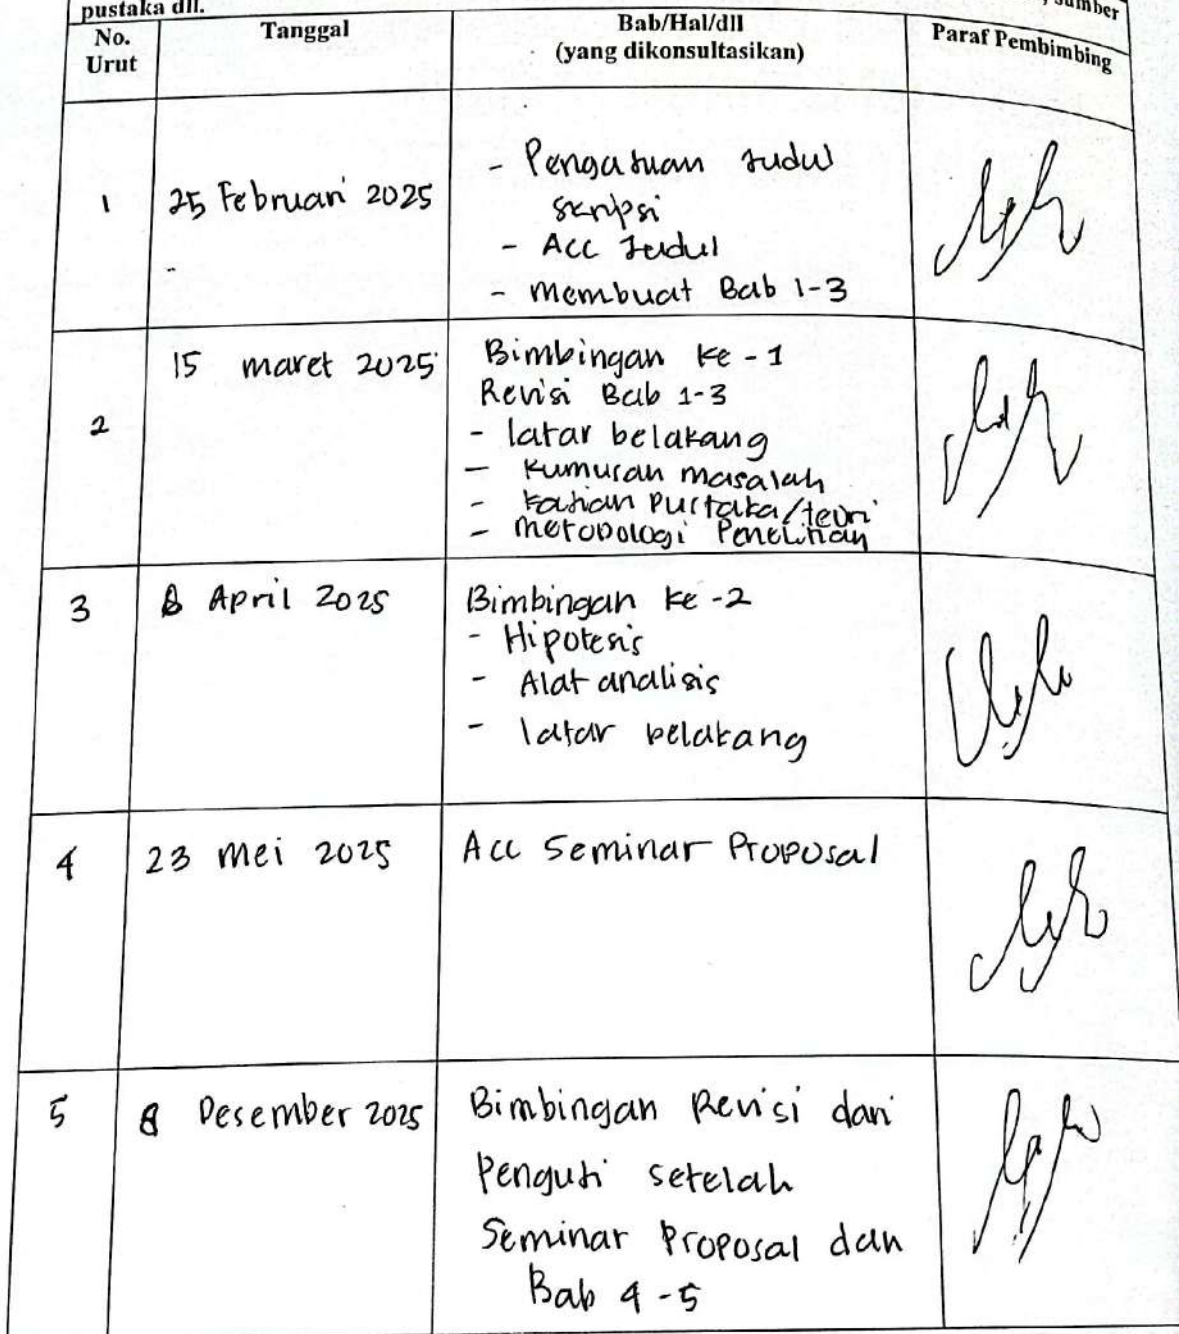 pustaka dll.
sumber
No.
Urut
Tanggal
Bab/Hal/dll
(yang dikonsultasikan)
Paraf Pembimbing
1
25 Februari 2025
- Pengajuan Judul
skripsi
- Acc Judul
- Membuat Bab 1-3
2
15 maret 2025
Bimbingan ke-1
Revisi Bab 1-3
- latar belakang
- Rumusan masalah
- kajian Pustaka/teori
- metodologi Penelitian
3
8 April 2025
Bimbingan ke-2
- Hipotesis
- Alat analisis
- latar belakang
4
23 mei 2025
Acc Seminar Proposal
5
8 Desember 2025
Bimbingan Revisi dari
Penguji setelah
Seminar Proposal dan
Bab 4-5